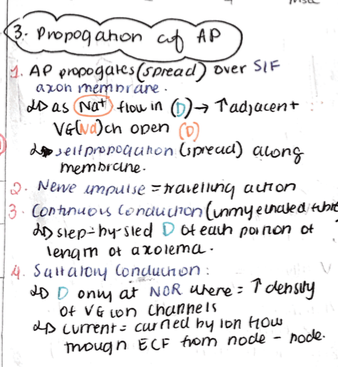 3. Propogation of AP
1. AP propogates (spread) over S/F
axon membrane.
↳D as Na+ flow in (D) → ↑ adjacent
VG(Na)ch open (D)
↳ selfpropogation (spread) along
membrane.
2. Nerve impulse = travelling action
3. Continuous Conduction (unmyelinated
↳D step-by-sted D of each portion of
length of axolema.
4. Saltatory Conduction:
↳D D only at NOR where = ↑ density
of VG ion channels
↳D current = carried by ion flow
through ECF from node - node.